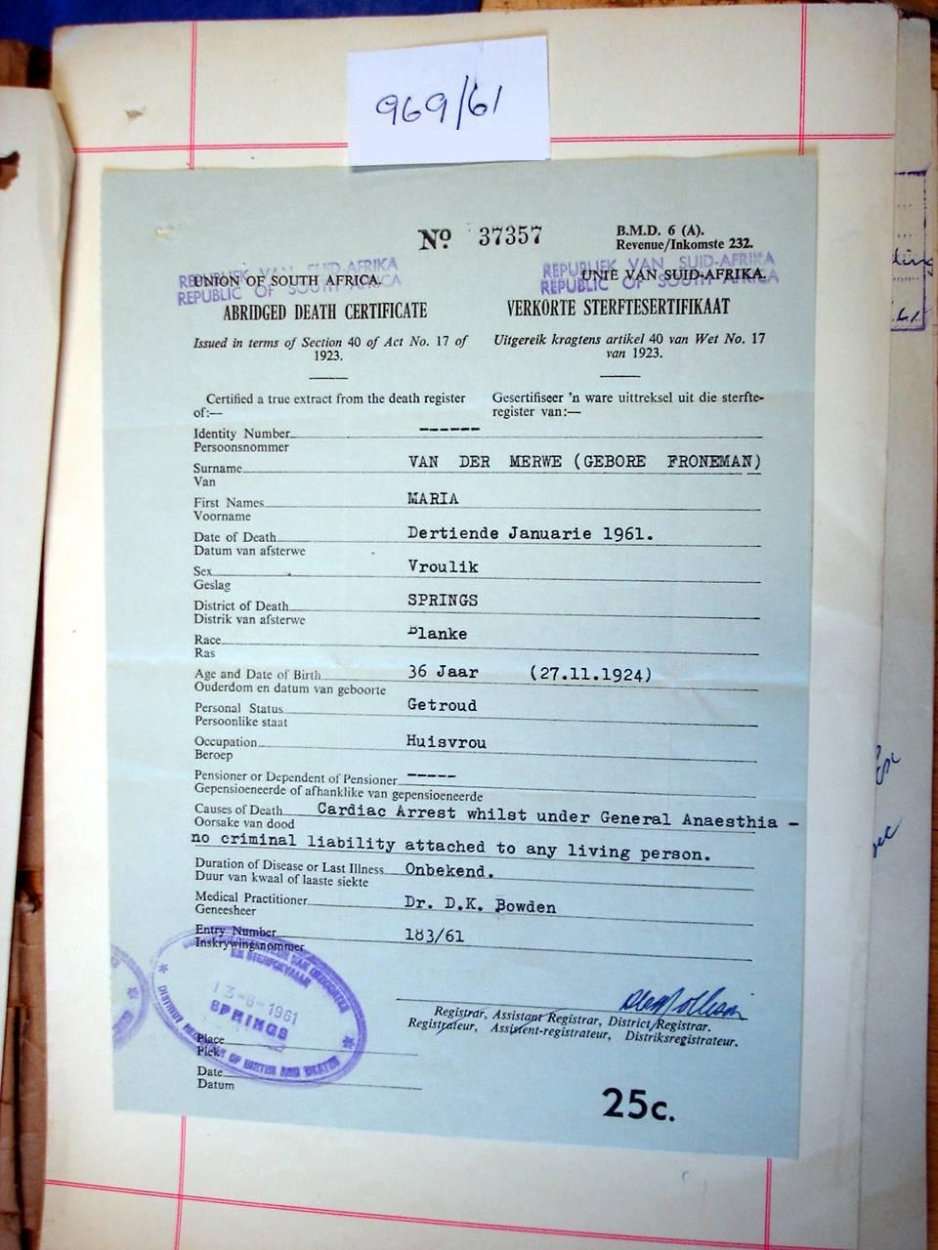 969/61
No 37357
B.M.D. 6 (A).
Revenue/Inkomste 232.
REPUBLIEK VAN SUID-AFRIKA
UNION OF SOUTH AFRICA.
REPUBLIC OF SOUTH AFRICA
REPUBLIEK VAN SUID-AFRIKA
UNIE VAN SUID-AFRIKA.
REPUBLIC OF SOUTH AFRICA
ABRIDGED DEATH CERTIFICATE
VERKORTE STERFTESERTIFIKAAT
Issued in terms of Section 40 of Act No. 17 of
1923.
Uitgereik kragtens artikel 40 van Wet No. 17
van 1923.
Certified a true extract from the death register
of:—
Gesertifiseer 'n ware uittreksel uit die sterfte-
register van:—
Identity Number ------
Persoonsnommer
Surname VAN DER MERWE (GEBORE FRONEMAN)
Van
First Names MARIA
Voorname
Date of Death Dertiende Januarie 1961.
Datum van afsterwe
Sex Vroulik
Geslag
District of Death SPRINGS
Distrik van afsterwe
Race Blanke
Ras
Age and Date of Birth 36 Jaar (27.11.1924)
Ouderdom en datum van geboorte
Personal Status Getroud
Persoonlike staat
Occupation Huisvrou
Beroep
Pensioner or Dependent of Pensioner -----
Gepensioeneerde of afhanklike van gepensioeneerde
Causes of Death Cardiac Arrest whilst under General Anaesthia –
Oorsake van dood
no criminal liability attached to any living person.
Duration of Disease or Last Illness Onbekend.
Duur van kwaal of laaste siekte
Medical Practitioner Dr. D.K. Bowden
Geneesheer
Entry Number 183/61
Inskrywingsnommer
1961
SPRINGS
OF BIRTHS AND DEATHS
Registrar, Assistant Registrar, District Registrar.
Registrateur, Assistent-registrateur, Distriksregistrateur.
Place
Plek
Date
Datum
25c.